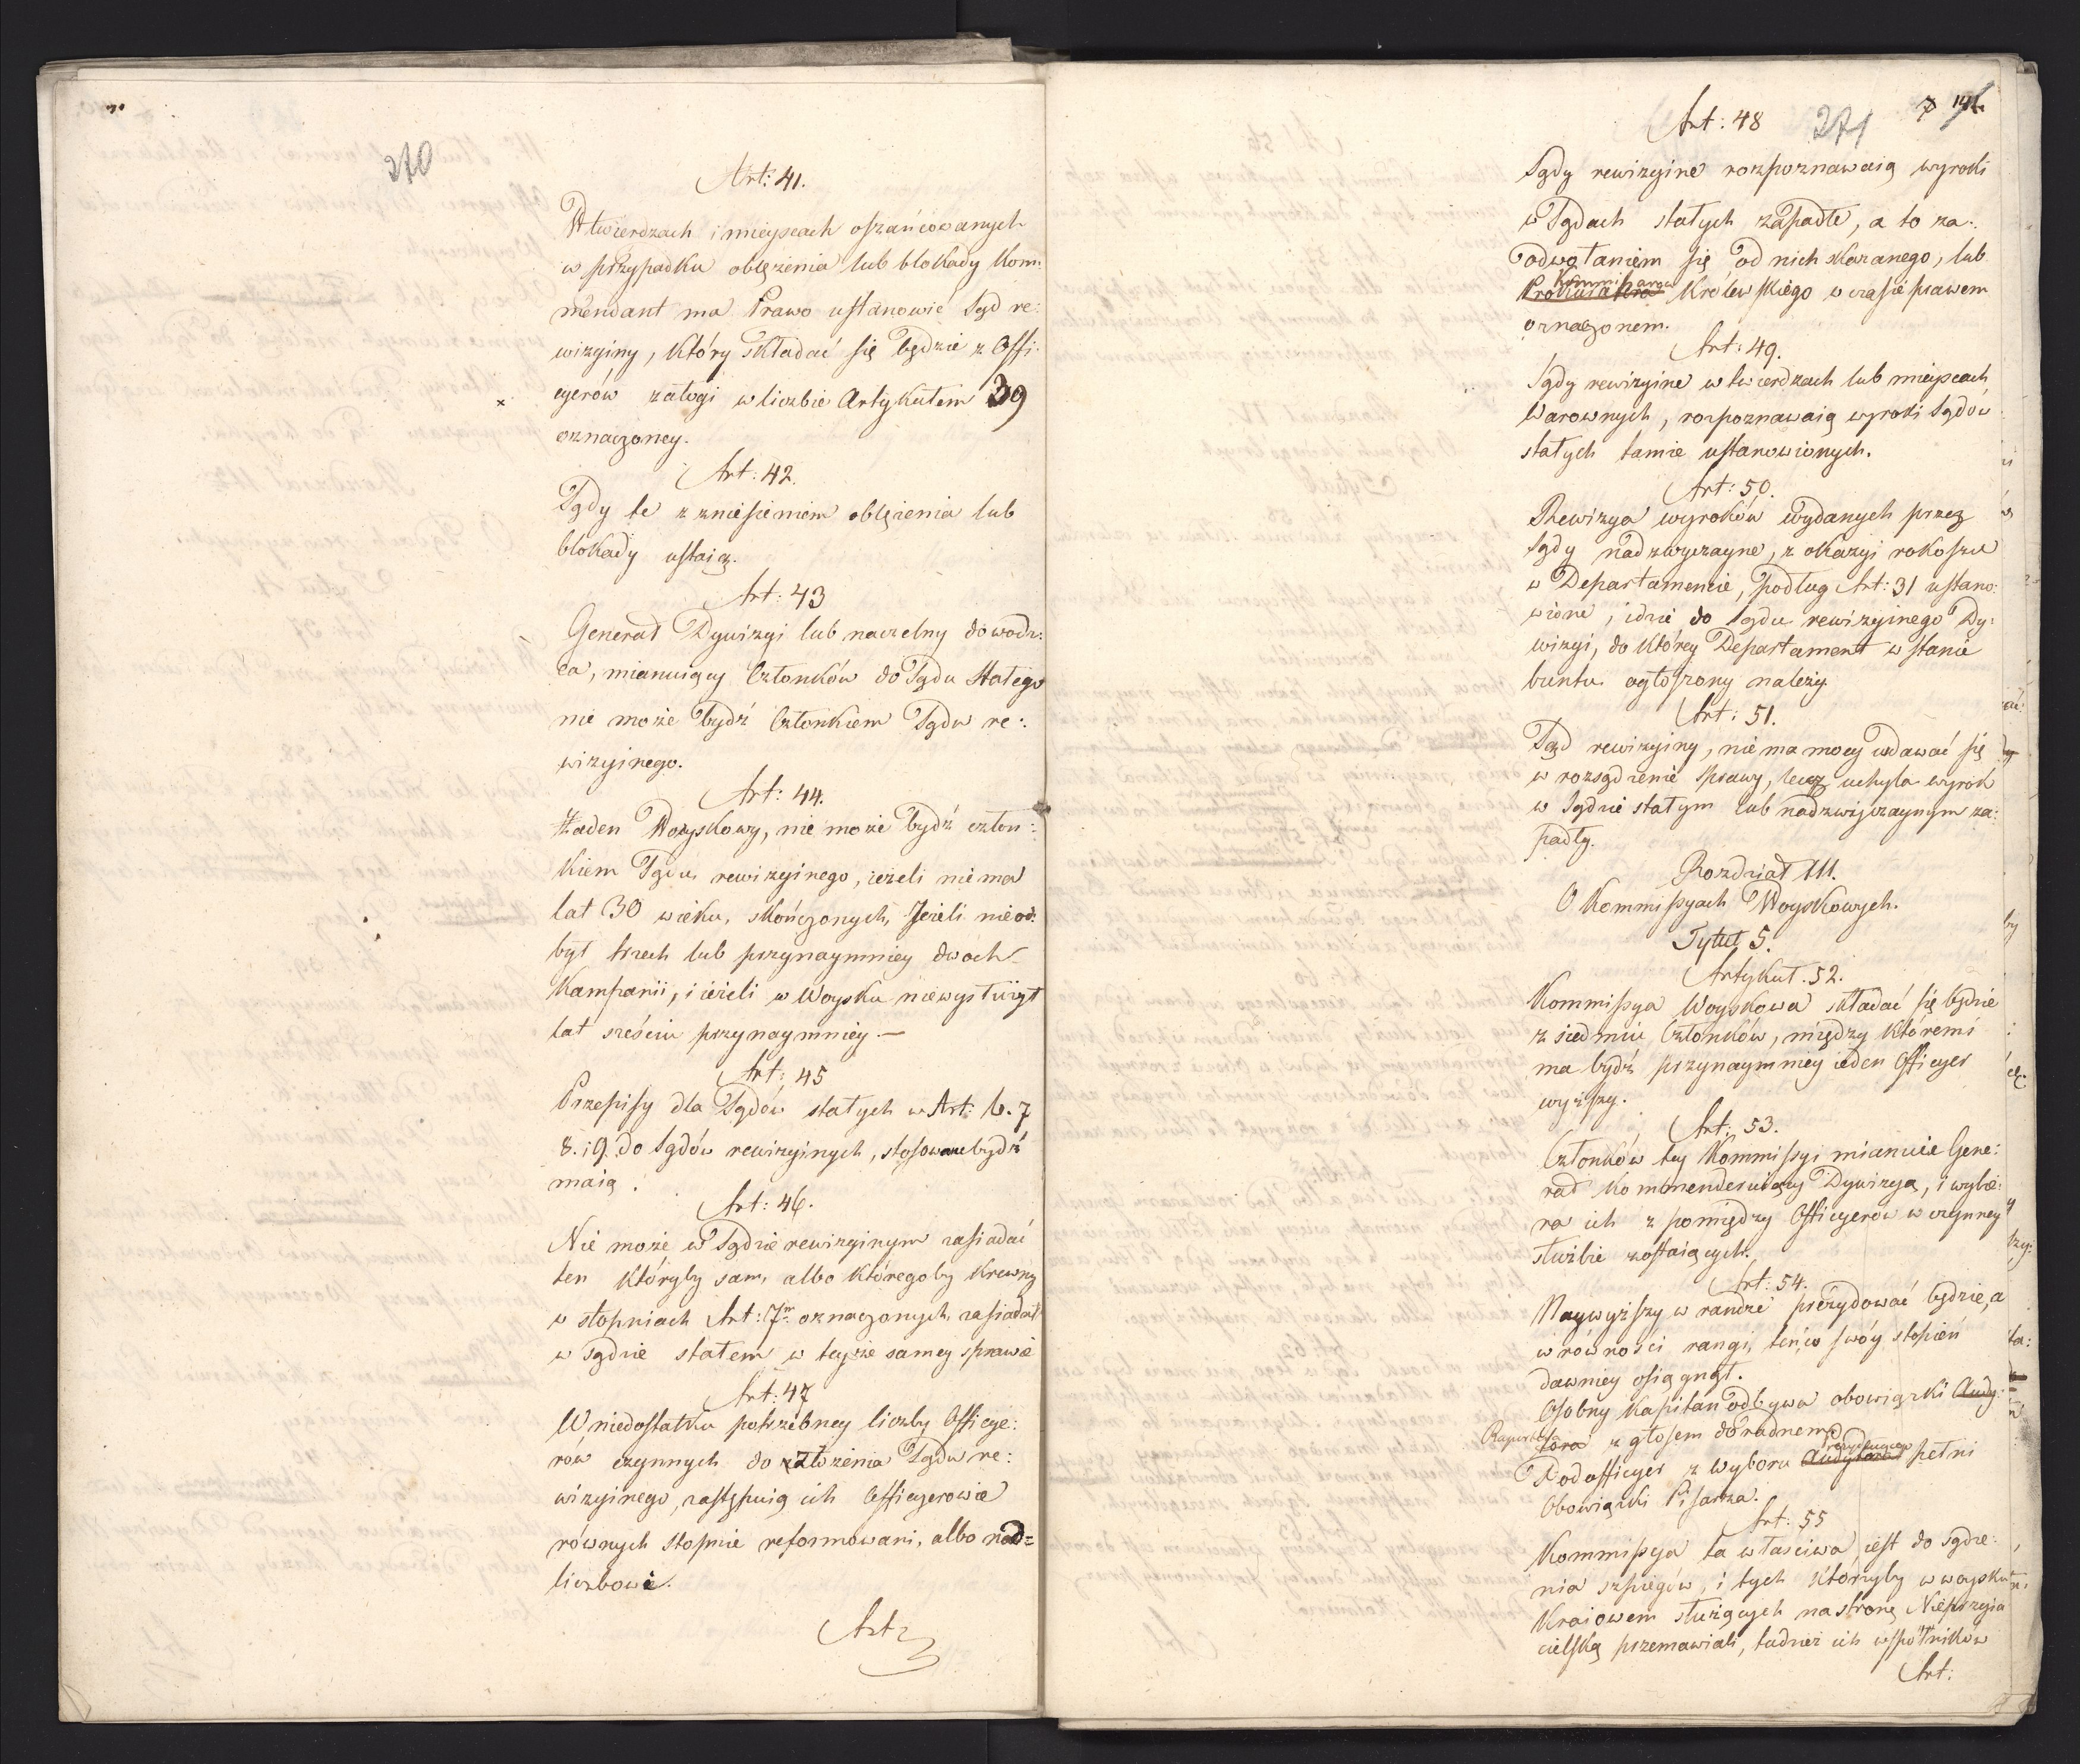 270
Art: 41.
W twierdzach i mieyscach oszańcowanych
w przypadku oblężenia lub blokady Kom:
mendant ma Prawo ustanowić Sąd re:
wizyiny, który składać się będzie z Offi:
cyerów załogi w liczbie Artykułem 39
oznaczoney.
Art: 42.
Sądy te z zniesieniem oblężenia lub
blokady ustaią.
Art: 43
Generał Dywizyi lub naczelny dowodz:
ca, mianuiący Członków do Sądu Stałego
nie może bydź Członkiem Sądu re:
wizyinego.
Art: 44.
Żaden Woyskowy, nie może bydź człon:
kiem Sądu rewizyinego, ieżeli nie ma
lat 30 wieku, skończonych, Jeżeli nie od:
był trzech lub przynaymniey dwoch
Kampanii, i ieżeli w Woysku niewysłużył
lat sześciu przynaymniey. —
Art: 45
Przepisy dla Sądów stałych w Art: 6. 7
8. i 9. do Sądów rewizyinych, stosowane bydź
maią.
Art: 46.
Nie może w Sądzie rewizyinym zasiadać
ten któryby sam, albo któregoby Krewny
w stopniach Art: 7m. oznaczonych, zasiadał
w Sądzie stałem w teyże samey sprawie
Art: 47
W niedostatku potrzebney liczby Officye:
rów czynnych do złożenia Sądu re:
wizyinego, zastąpuią ich Officyerowie
równych stopnie reformowani, albo nad=
liczbowi.
Art
271
Art: 48
Sądy rewizyine rozpoznawaią wyroki
w Sądach stałych zapadłe, a to za:
odwołaniem się od nich skazanego, lub
Kommissarza
Prokuratora Królewskiego w czasie prawem
oznaczonem.
Art: 49.
Sądy rewizyine w twierdzach lub mieyscach
Warownych, rozpoznawaią wyroki Sądów
stałych tamże ustanowionych.
Art: 50.
Rewizya wyroków wydanych przez
Sądy nadzwyczayne, z okazyi rokoszu
w Departamencie, podług Art: 31 ustano:
wione, idzie do Sądu rewizyinego Dy:
wizyi, do którey Departament w stanie
buntu ogłoszony należy.
Art: 51.
Sąd rewizyiny, nie ma mocy wdawać się
w rozsądzenie sprawy, lecz uchyla wyrok
w Sądzie stałym lub nadzwyczaynym za:
padły.
Rozdział III.
O Kommissyach Woyskowych.
Tytuł 5.
Artykuł. 52.
Kommissya Woyskowa składać się będzie
z siedmiu Członków, między któremi
ma bydź przynaymniey ieden Officyer
wyższy.
Art: 53.
Członków tey Kommissyi mianuie Gene:
rał kommenderuiący Dywizyą, i wybie:
ra ich z pomiędzy Officyerów w czynney
służbie zostaiących.
Art: 54.
Naywyższy w randze prezydować będzie, a
w równości rangi, ten, co swóy stopień
dawniey osiągnął.
Osobny Kapitan odbywa obowiązki Audy:
tora z głosem doradnem,
Podofficyer z wyboru Audytora pełni
Obowiązki Pisarza.
Art: 55
Kommissya ta właściwa iest do sądze:
nia szpiegów, i tych którzyby w woysku
Kraiowem służących na stronę Nieprzyia
cielską przemawiali, tudzież ich wspólników
Art: